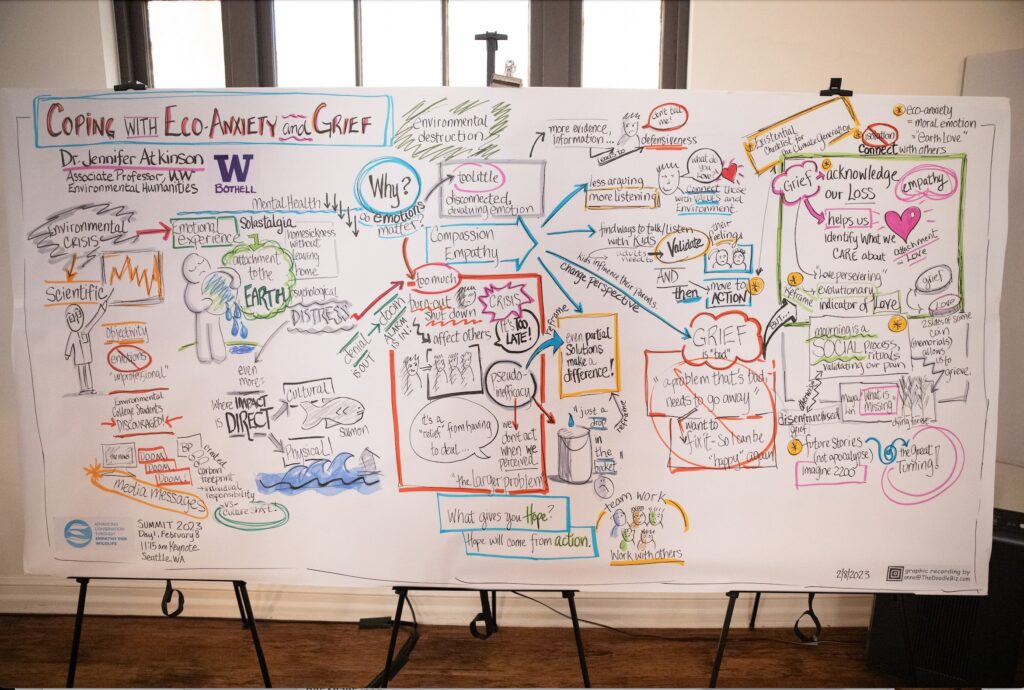 COPING WITH ECO-ANXIETY and GRIEF
Dr. Jennifer Atkinson
Associate Professor, UW
Environmental Humanities
W
BOTHELL
Environmental
CRISIS
Scientific
Objectivity
emotions
"unprofessional"
Environmental
College Students
DISCOURAGED!
the news
DOOM
DOOM
DOOM!
media messages
BP
created
carbon
footprint
individual
responsibility
-VS-
Culture Shift
ADVANCING
CONSERVATION
THROUGH
EMPATHY FOR
WILDLIFE
SUMMIT 2023
Day 1, February 8
Keynote
Seattle, WA
Mental Health
Emotional
Experience
Solastalgia
homesickness
without
leaving
home
attachment
to the
EARTH
Psychological
DISTRESS
even
more:
Where IMPACT
is DIRECT
Cultural
Salmon
Physical
Why?
emotions
matter
environmental
destruction
too little
disconnected,
devaluing emotion
Compassion
Empathy
more evidence,
information...
leads to
don't tell
me!
defensiveness
less arguing
more listening
what do
you
LOVE?
Connect those
with VALUES and
Environment
find ways to talk/listen
with Kids
adults need to
Validate
their
feelings
AND
then
move to
ACTION
kids influence their parents
change perspective
too much
burn-out
shut down
affect others
denial
DOOM
ALARM
CRISIS
IT'S TOO
LATE!
pseudo-
inefficacy
it's a
"relief" from having
to deal...
we
don't act
when we
perceived
"the larger problem"
reframe
even partial
Solutions
make a
difference!
"just a
drop
in
the
bucket"
reframe
What gives you Hope?
Hope will come from action.
team work
Work with others
GRIEF
is "bad"
"a problem that's bad,
needs to go away"
want to
fix it - so I can be
"happy" again
BUT...
Existential
Checklist for
the Climate Generation
eco-anxiety
= moral emotion
= "earth Love"
solution
Connect with others
Grief
acknowledge
our LOSS
empathy
helps us
identify what we
CARE about
attachment
= Love
reframe
"love persevering"
evolutionary
indicator of Love
grief
LOVE
2 sides of same
coin
(memorials)
allows
us to
grieve.
mourning is a
SOCIAL process,
rituals
Validating our pain
otherwise
disenfranchised
grief
What is
missing
future Stories
(not apocalypse)
imagine 2200
the Great
Turning!
2/8/2023
graphic recording by
anne@TheDoodleBiz.com